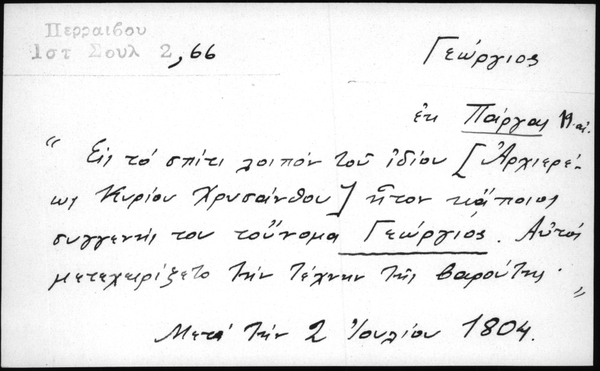 Περραιβου
Ιστ Σουλ 2, 66
Γεώργιος
ἐκ Πάργας
" Εἰς τό σπίτι λοιπόν τοῦ ἰδίου [Ἀρχιερέ-
ως Κυρίου Χρυσάνθου] ἦτον κάποιος
συγγενής του τοὔνομα Γεώργιος. Αὐτός
μετεχειρίζετο τήν τέχνην τῆς βαρούτης. "
Μετά τήν 2 Ἰουλίου 1804.